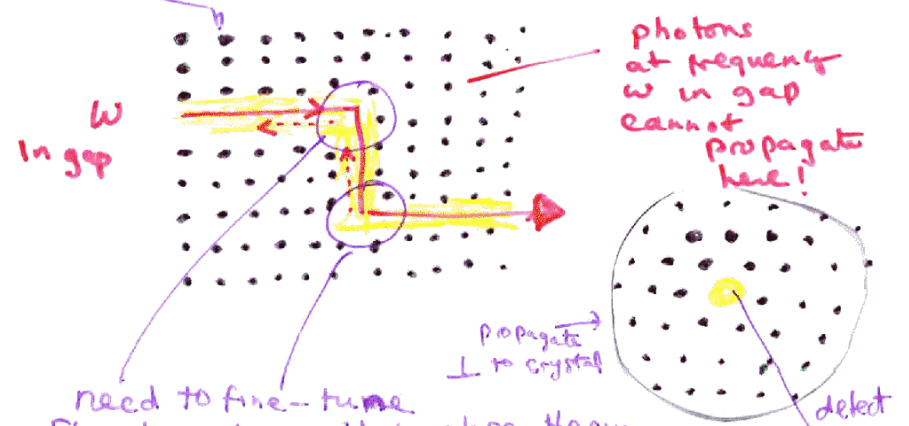 photons
at frequency
ω in gap
cannot
propagate
here!
ω
In gap
propagate
⊥ to crystal
need to fine-tune
defect